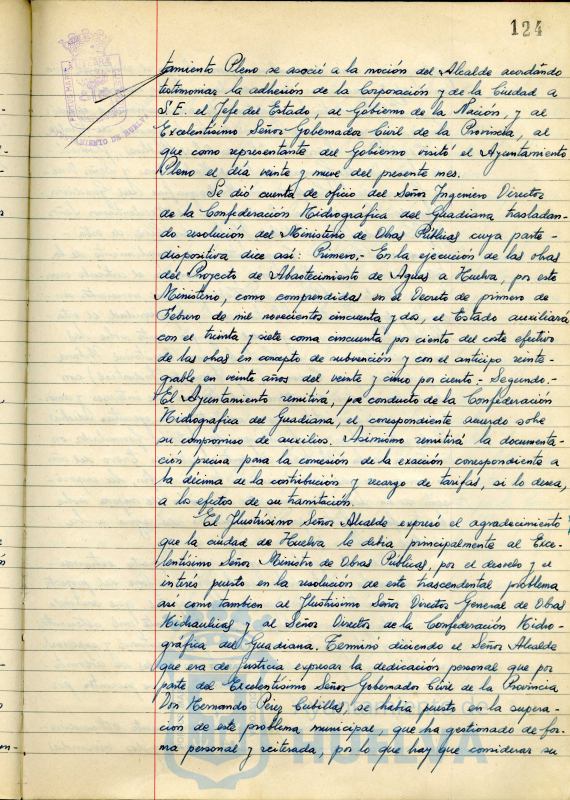 124
tamiento Pleno se asoció a la moción del Alcalde acordándo
testimoniar la adhesión de la Corporación y de la Ciudad a
S.E. el Jefe del Estado, al Gobierno de la Nación, y al
Excelentísimo Señor Gobernador Civil de la Provincia, al
que como representante del Gobierno visitó el Ayuntamiento
Pleno el día veinte y nueve del presente mes.
Se dió cuenta de oficio del Señor Ingeniero Director
de la Confederación Hidrográfica del Guadiana trasladan-
do resolución del Ministerio de Obras Públicas cuya parte
dispositiva dice así: Primero.- En la ejecución de las obras
del Proyecto de Abastecimiento de Aguas a Huelva, por este
Ministerio, como comprendidas en el Decreto de primero de
Febrero de mil novecientos cincuenta y dos, el Estado auxiliará
con el treinta y siete coma cincuenta por ciento del coste efectivo
de las obras en concepto de subvención y con el anticipo reinte-
grable en veinte años del veinte y cinco por ciento.- Segundo.-
El Ayuntamiento remitirá, por conducto de la Confederación
Hidrografica del Guadiana, el correspondiente acuerdo sobre
su compromiso de auxilios. Asimismo remitirá la documenta-
ción precisa para la concesión de la exacción correspondiente a
la décima de la contribución, y recargo de tarifas, si lo desea,
a los efectos de su tramitación.
El Ilustrisimo Señor Alcalde expresó el agradecimiento
que la ciudad de Huelva le debia principalmente al Exce-
lentísimo Señor Ministro de Obras Públicas, por el desvelo y el
interés puesto en la resolución de este trascendental problema
así como tambien al Ilustrisimo Señor Director General de Obras
Hidraulicas y al Señor Director de la Confederación Hidro-
gráfica del Guadiana. Terminó diciendo el Señor Alcalde
que era de justicia expresar la dedicación personal que por
parte del Excelentísimo Señor Gobernador Civil de la Provincia
Don Hernando Pérez Cubillas, se había puesto en la supera-
ción de este problema municipal, que ha gestionado de for-
ma personal y reiterada, por lo que hay que considerar su
HUELVA